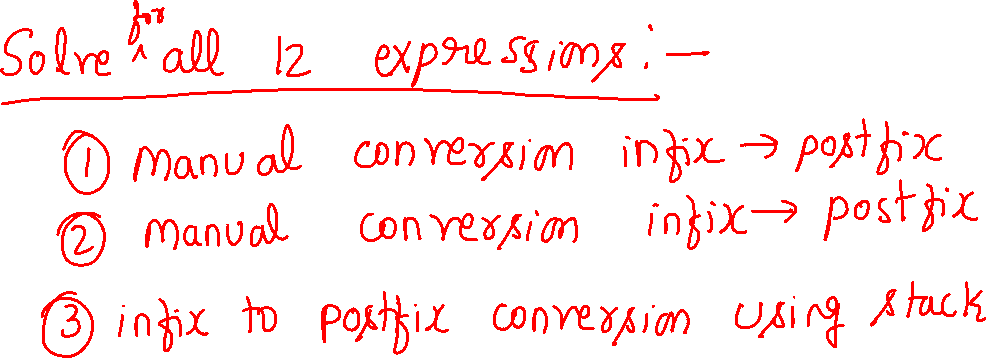 Solve for all 12 expressions:-
① Manual conversion infix → postfix
② Manual conversion infix → postfix
③ infix to postfix conversion using stack